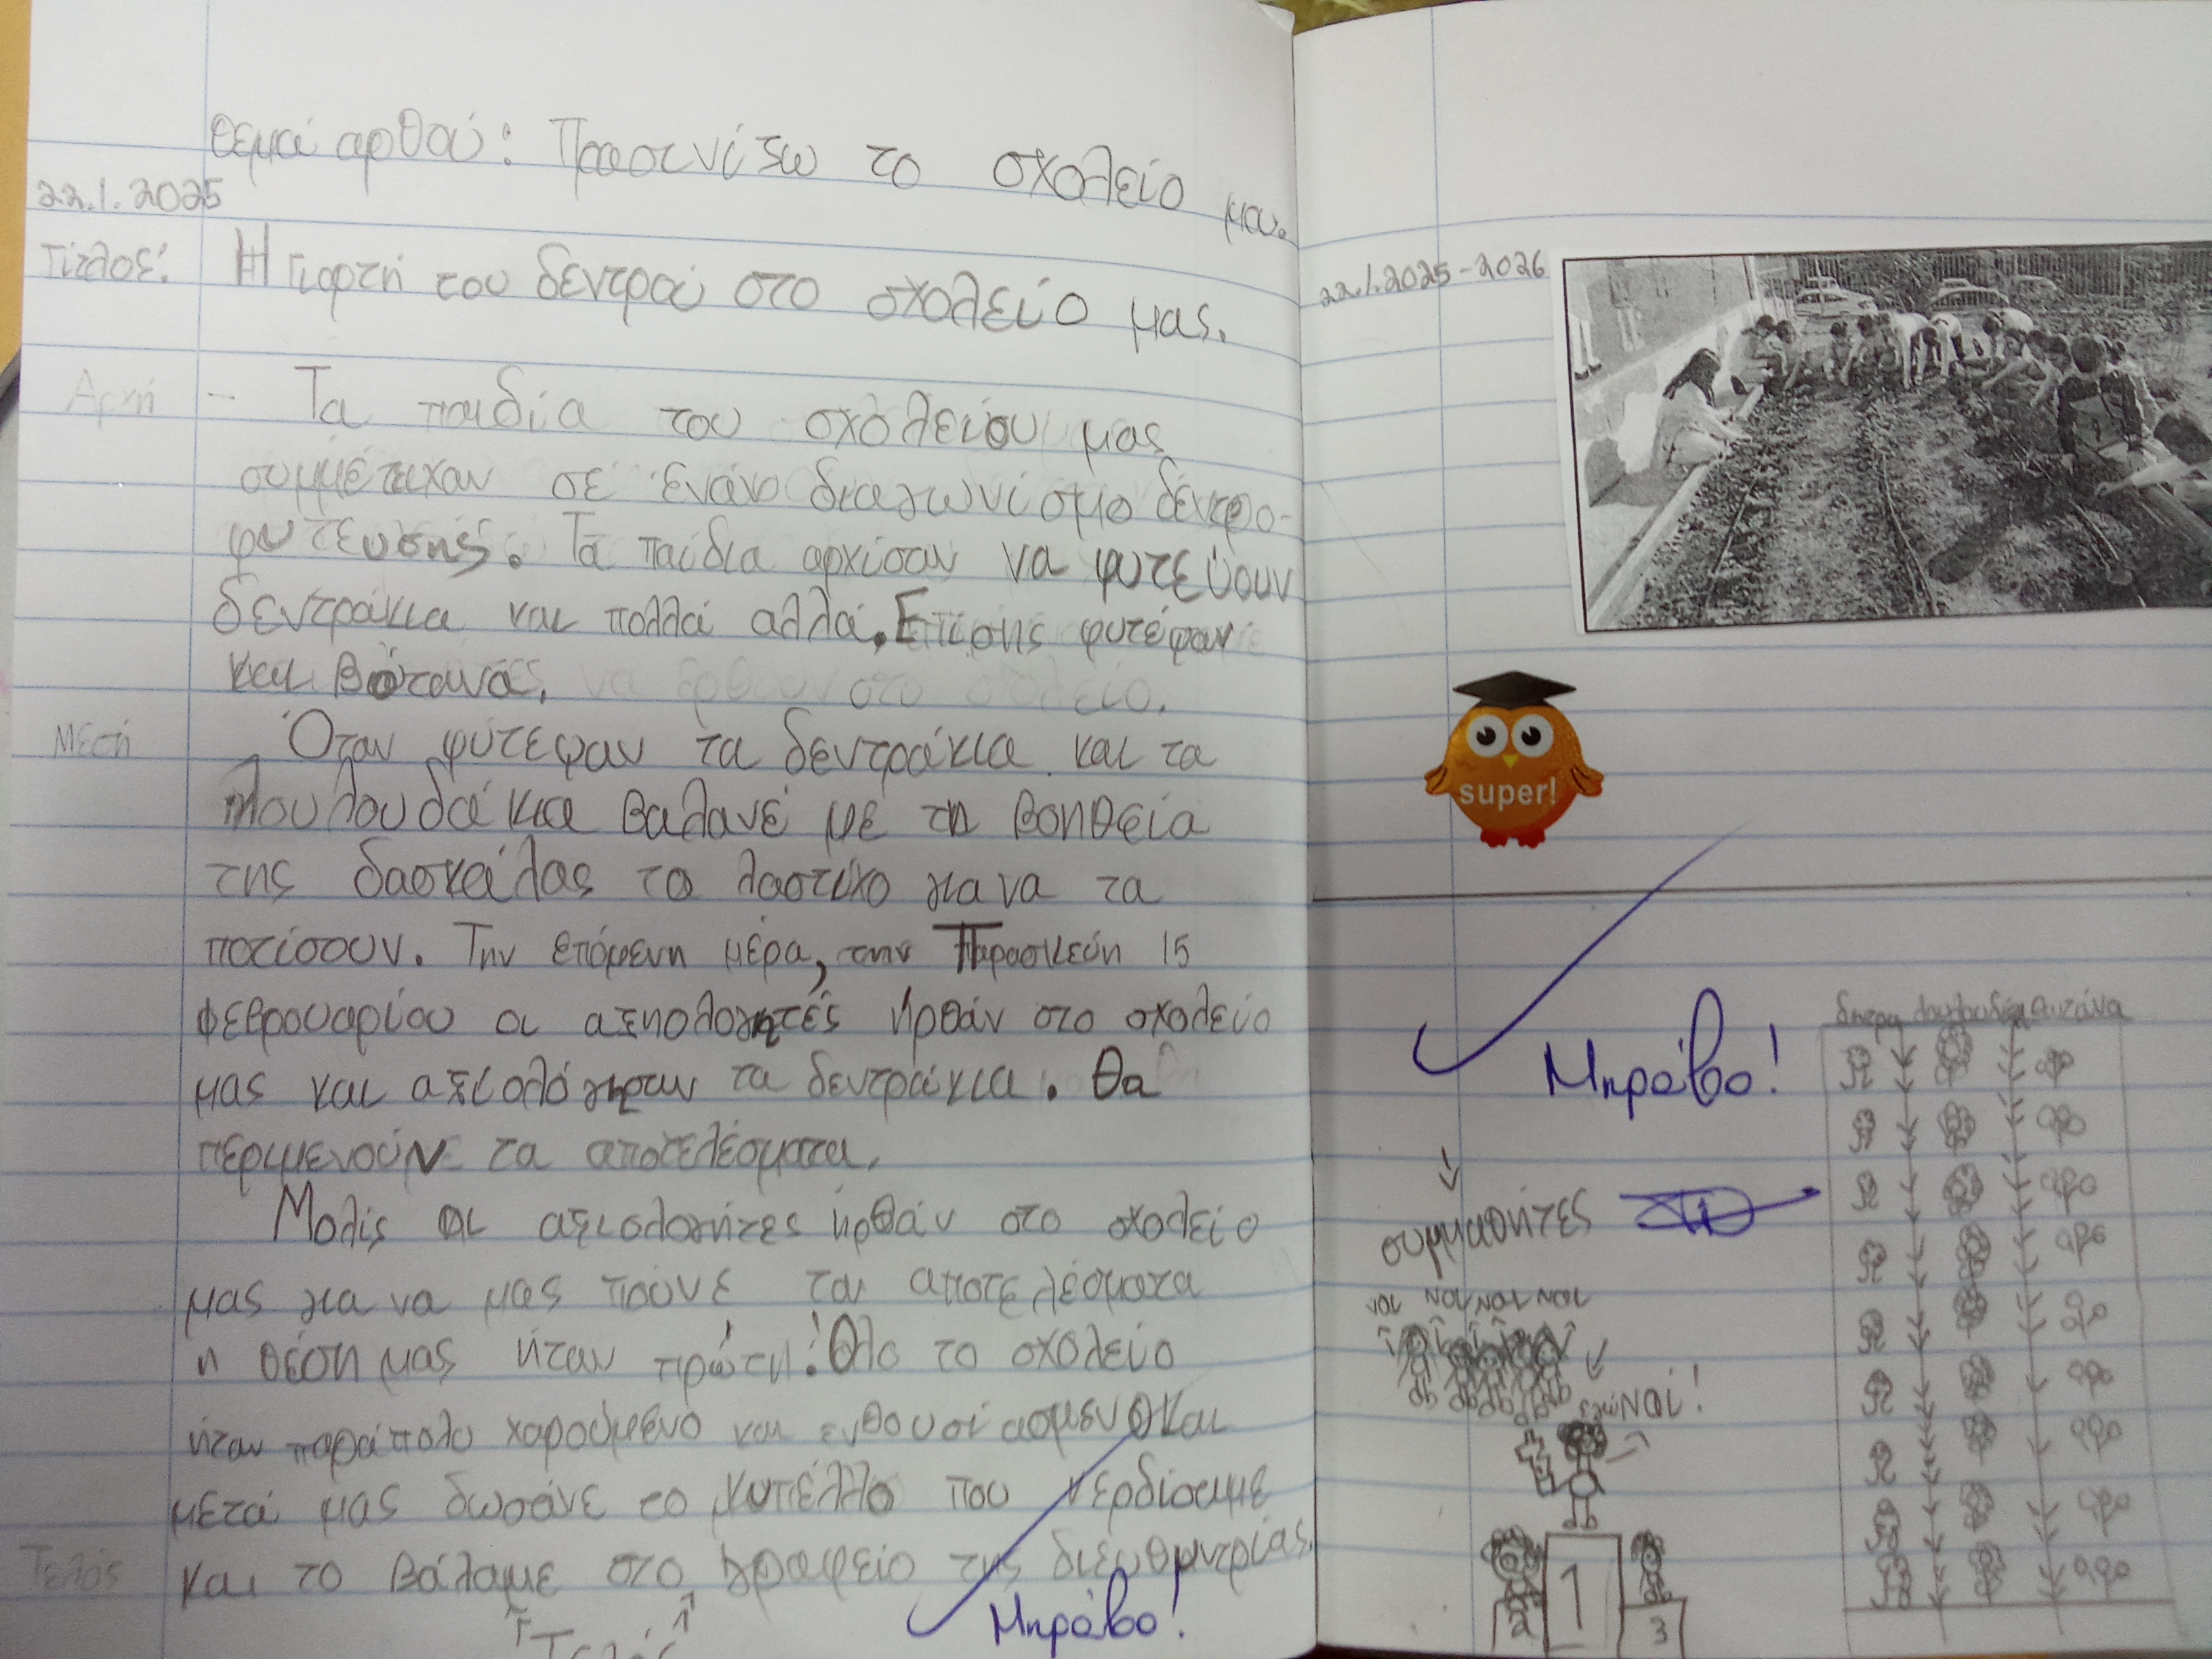 θεμα αρθού: Πρασινίζω το σχολείο μου.
22.1.2025
Τίτλος: Η Γιορτή του δεντρού στο σχολείο μας.
Αρχή - Τα παιδία του σχολείου μας
συμμέτειχαν σε έναν διαγωνίσμο δέντρο-
φυτευσής. Τα παίδια αρχίσαν να φυτεψουν
δεντράκια και πολλά αλλά. Επίσης φυτέψαν
και βότανά.
Μεσή Όταν φύτεψαν τα δεντράκια και τα
λουλουδάκια βαλανέ με τη βοηθεία
της δασκάλας το λαστιχο για να τα
ποτίσουν. Την επόμενη μέρα, την Παρασκεύη 15
Φεβρουαρίου οι αξηολογητές ήρθάν στο σχολείο
μας και αξιολόγησαν τα δεντράκια. Θα
περιμενούν τα αποτελέσματα.
Μολίς οι αξιολογήτες ήρθάν στο σχολείο
μας για να μας πούνε τα αποτελέσματα
η θέση μας ήταν πρώτη! Όλο το σχολείο
ήταν παράπολυ χαρούμενο και ενθουσίασμενο και
μετά μας δωσάνε το κυπέλλο που κερδίσαμε
Τελός και το βάλαμε στο γραφείο της διευθηντρίας.
Τελός
Μπράβο!
22.1.2025-2026
super!
Μπράβο!
συμμαθήτες
ΝΑΙ!
1
2
3